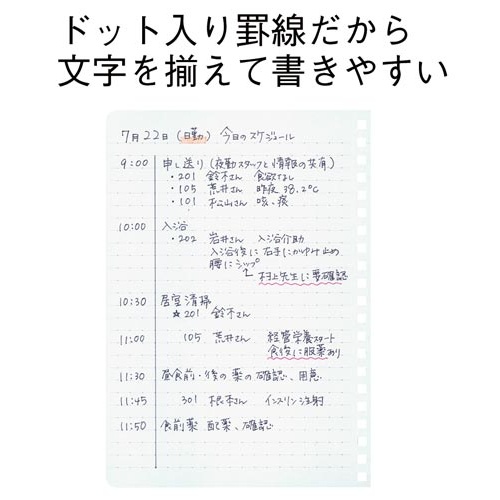 ドット入り罫線だから
文字を揃えて書きやすい
7月22日(日勤) 今日のスケジュール
9:00 申し送り(夜勤スタッフと情報の共有)
・201 鈴木さん 食欲なし
・105 荒井さん 昨夜 38.2℃
・101 松山さん 咳、痰
10:00 入浴
・202 岩井さん 入浴介助
入浴後に右手にかゆみ止め
腰にシップ
村上先生に要確認
10:30 居室清掃
☆201 鈴木さん
11:00 105 荒井さん 経管栄養スタート
食後に服薬あり
11:30 昼食前・後の薬の確認、用意
11:45 301 根本さん インスリン注射
11:50 食前薬 配薬、確認